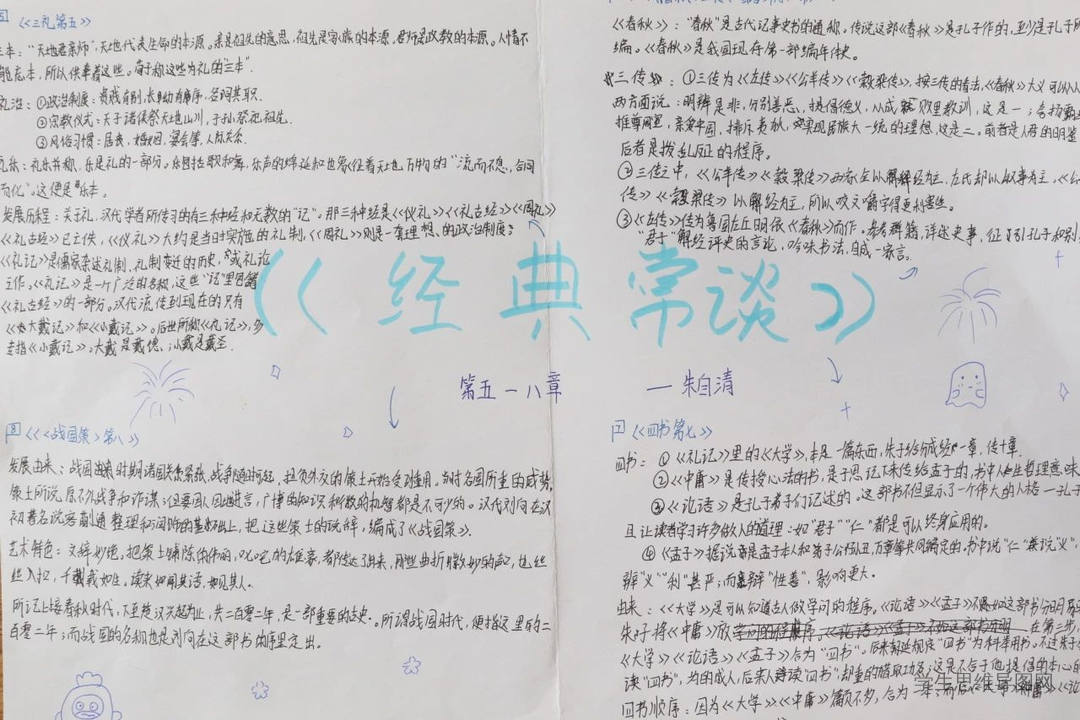 《三礼第五》
三本："天地君亲师",天地代表生命的本源。亲是祖先的意思,祖先是家族的本源,君师是政教的本源。人情不
能忘本,所以供奉着这些。荀子称这些为礼的"三本".
礼治:①政治制度:贵贱有别,长幼有序,各司其职.
②宗教仪式:天子诸侯祭天地山川,子孙祭祀祖先.
③风俗习惯:居丧,婚姻,宴会等,人际关系.
礼乐并称,乐是礼的一部分。乐包括歌和舞,乐声的绵延和也象征着天地万物的"流而不息,合同
而化"。这便是乐本.
发展历程:关于礼,汉代学者所传习的有三种经和无数的"记"。那三种经是《仪礼》《礼古经》《周礼》
《礼古经》已亡佚,《仪礼》大约是当时实施的礼制,《周礼》则是一套理想的政治制度;
《礼记》是儒家杂述礼制,礼制变迁的历史,或礼论
之作。《礼记》是一个广泛的名称,这些"记"里包含
《礼古经》的一部分。汉代流传到现在的只有
《大戴记》和《小戴记》。后世所称《礼记》,多
专指《小戴记》;大戴是戴德,小戴是戴圣.
《春秋》:"春秋"是古代记事史书的通称,传说这部《春秋》是孔子作的,至少是孔子所
编。《春秋》是我国现存第一部编年体史。
三传:①三传为《左传》《公羊传》《穀梁传》,按三传的看法,《春秋》大义可以从
两方面说:明辨是非,分别善恶,提倡德义,从成败里教训,这是一;夸扬霸
推尊周室,亲爱中国,排斥夷狄,实现民族大一统的理想,这是二。前者是人君的明鉴
后者是拨乱反正的程序。
②三传之中,《公羊传》《穀梁传》两家全以解经为主,左氏却以叙事为主,《公
传》《穀梁传》以解经为主,所以咬文嚼字得更利害些。
③《左传》传为鲁国左丘明依《春秋》而作。参考群籍,详述史事,征引孔子和别
"君子"解经评史的言论,吟味书法,自成一家言。
《经典常谈》
第五一八章
—朱自清
《《战国策》第八》
发展由来:战国时期诸国关系紧张,战争随时起,担负外交的策士开始受到重用,当时各国所重的威势,
策士所说,原不外战争和诈谋;但要因人因地进言,广博的知识和微妙的机智都是不可少的。汉代刘向在汉
初著名说客蒯通整理和润饰的基础上,把这些策士的说辞,编成了《战国策》.
艺术特色:文辞妙绝,把策士铺陈的伟丽,叱咤的雄豪,都传达了出来,那些曲折微妙的声口,也丝
丝入扣,千载栽如生。读来如闻其语,如见其人.
所记上接春秋时代,下至楚汉兴起为止,共二百零二年,是一部重要的古史。所谓战国时代,便指这里的二
百零二年;而战国的名称也是刘向在这部书的序里定出.
《四书第七》
四书:①《礼记》里的《大学》,本是一篇东西,朱子给分成经一章,传十章.
②《中庸》是传授心法的书,是子思记下来传给孟子的,书中人生哲理意味
③《论语》是孔子弟子们记述的。这部书不但显示了一个伟大的人格一孔子
且让读者学习许多做人的道理:如"君子""仁"都是可以终身应用的。
④《孟子》据说是孟子本人和弟子公孙丑,万章等共同编定的.书中说"仁"兼说"义",
辨"义""利"甚严;而辩"性善",影响更大。
由来:《大学》是可以知道古人做学问的程序。《论语》《孟子》不如这部书分明
朱子将《中庸》放 在第三步,
《大学》《论语》《孟子》合为"四书"。后来朝廷规定"四书"为科举用书。
读"四书",
四书顺序:因为《大学》《中庸》篇页不多,合为一本
学生思维导图网